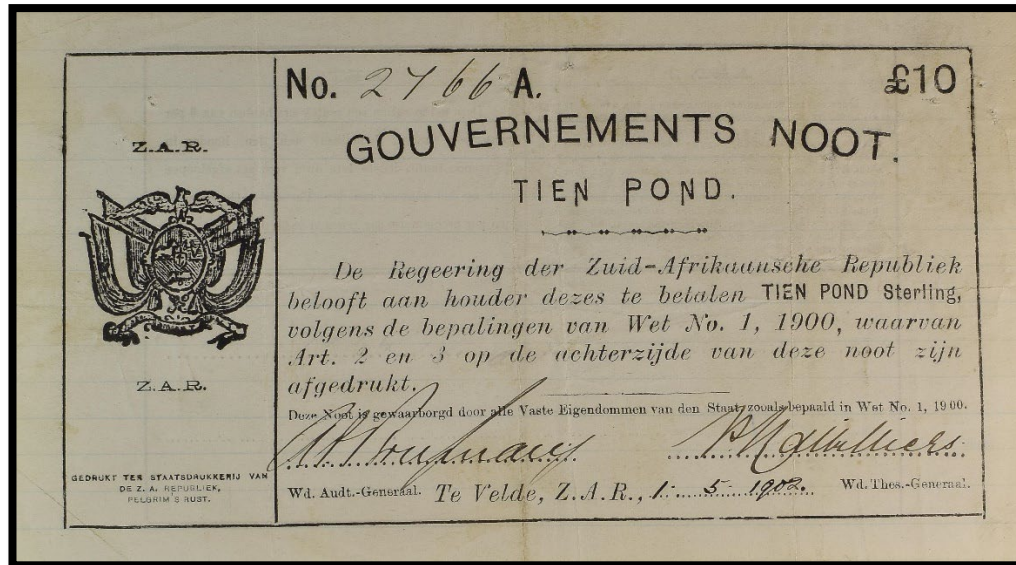 Z.A.R.
Z.A.R.
GEDRUKT TER STAATSDRUKKERIJ VAN
DE Z. A. REPUBLIEK,
PELGRIM S RUST.
No. 2766 A. £10
GOUVERNEMENTS NOOT.
TIEN POND.
De Regeering der Zuid-Afrikaansche Republiek
belooft aan houder dezes te betalen TIEN POND Sterling,
volgens de bepalingen van Wet No. 1, 1900, waarvan
Art. 2 en 3 op de achterzijde van deze noot zijn
afgedrukt.
Deze Noot is gewaarborgd door alle Vaste Eigendommen van den Staat, zooals bepaald in Wet No. 1, 1900.
Wd. Audt.-Generaal. Te Velde, Z.A.R., 1 5 1902. Wd. Thes.-Generaal.